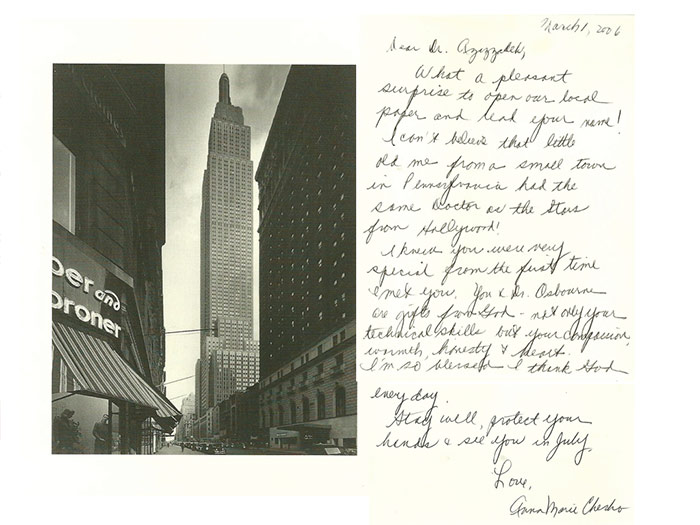 per and
oroner
March 1, 2006
Dear Dr. Azizzadeh,
What a pleasant
surprise to open our local
paper and read your name!
I can't believe that little
old me from a small town
in Pennsylvania had the
same Doctor as the Stars
from Hollywood!
I knew you were very
special from the first time
I met you. You & Dr. Osbourne
are gifts from God - not only your
technical skills but your compassion,
warmth, honesty & heart.
I'm so blessed I think God
every day.
Stay well, protect your
hands & see you in July.
Love,
Anna Marie Chesko